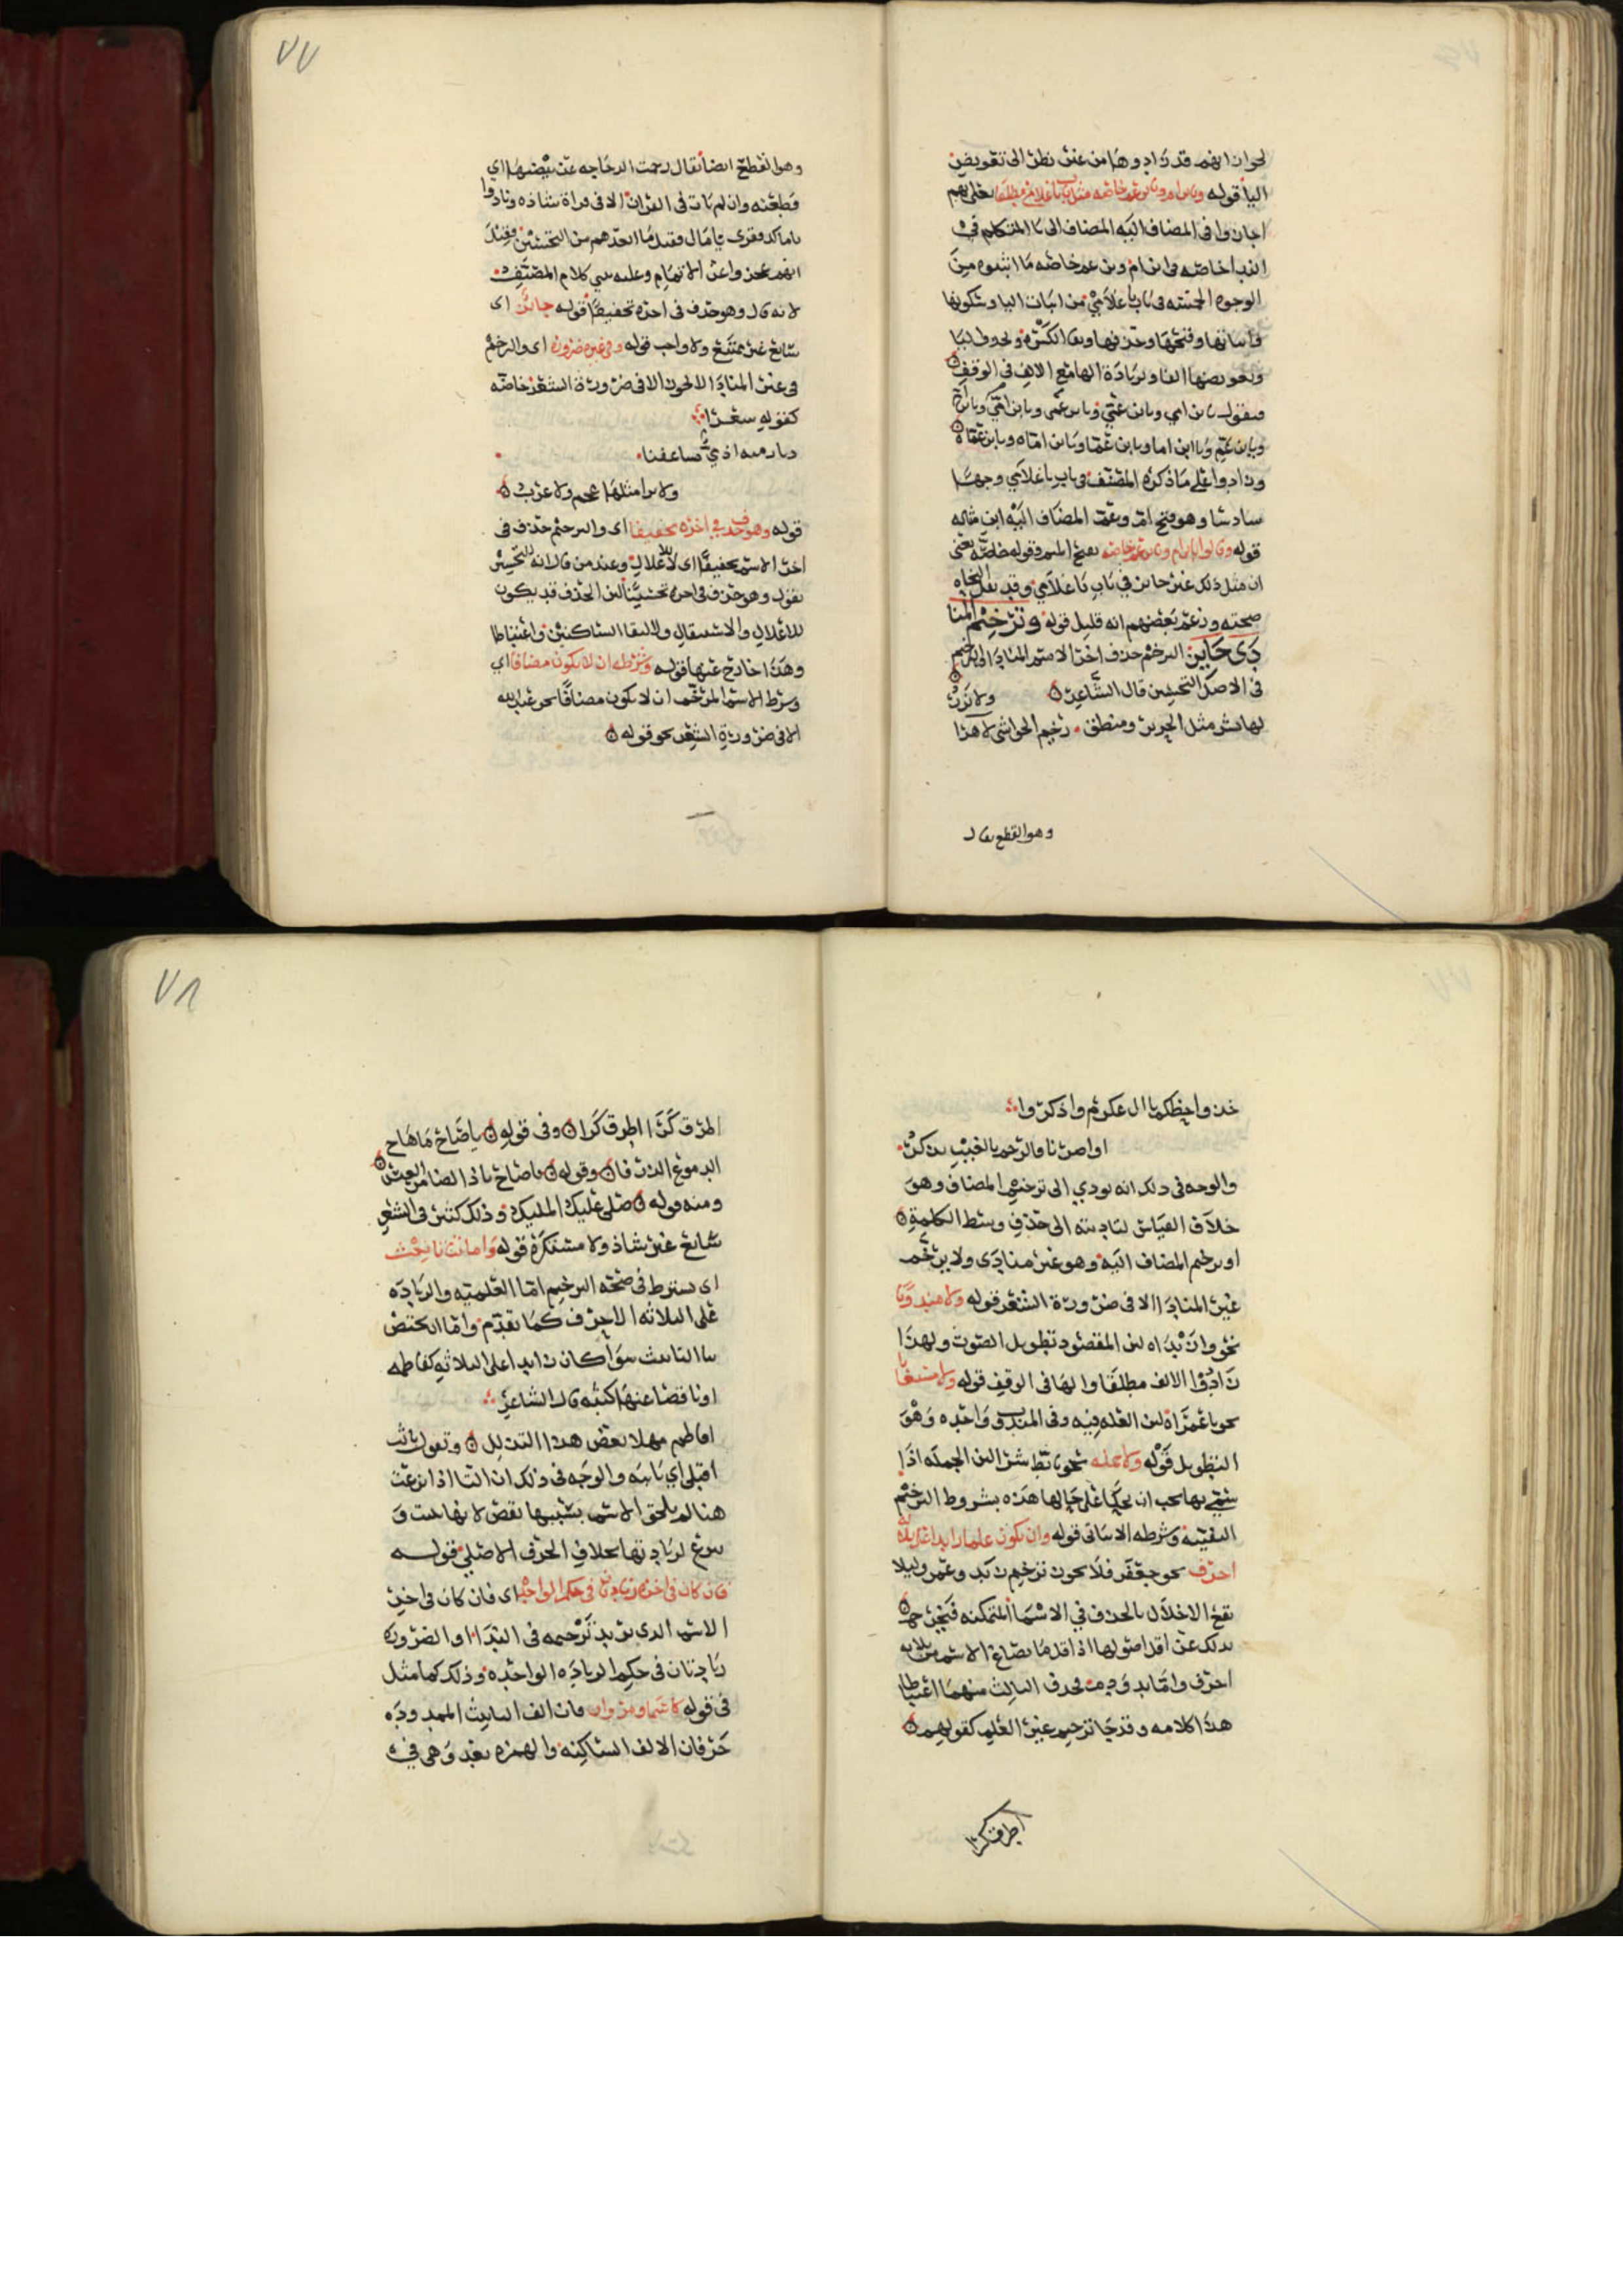 لجواز انهم قد زادوها من غير نظر الى تعويض
الياء قوله ويا ابن ام ويا ابن عم خاصة مثل باب يا غلامي مطلقا يعني انهم
اجازوا في المضاف اليه المضاف الى يا المتكلم في
الندا خاصه في ابن ام وبن عم خاصه ما اثبتوه من
الوجوه الخمسه في باب يا غلامي من اثبات اليا وسكونها
واثباتها وفتحها وحذفها وبقا الكسره ونحو قلب اليا
وتعويضها الفا وزيادة الها مع الالف في الوقف
فيقول يا بن امي ويا بن عمي ويا بن عمى ويا بن امي ويا بن ام
ويا بن عم ويا ابن اما ويا بن عما ويا بن اماه ويا بن عماه
وزادوا على ما ذكره المصنف في باب يا غلامي وجها
سادسا وهو فتح ام وعم المضاف اليه ابن مثاله
قوله وقالوا يا ابن ام ويا ابن عم خاصه بفتح الميم وقوله خاصه يعني
ان مثل ذلك غير جايز في باب يا غلامي وقد نقل النحاه
صحته وزعم بعضهم انه قليل قوله وترخيم المنا
دى جايز الترخيم حذف اخر الاسم المنادا الترخيم
في الاصل التحسين قال الشاعر
لها بشر مثل الحرير ومنطق رخيم الحواشي لا هذا ولا نزر
وهو القطع يقال
٧٧
وهو القطع ايضا يقال رخمت الدجاجه عن بيضها اي
قطعته وان لم يات في القران الا في قراة شاذه ونادوا
يا مالك وقرى يا مال وقيل ما ابعدهم من التحسين وقيل
انهم عجزوا عن الاتمام وعليه بني كلام المصنف
لانه قال وهو حذف في اخره تخفيفا قوله جائز اى
سائغ غير ممتنع ولا واجب قوله وفي غيره ضرورة اى والترخيم
في غير المنادا لا يجوز الا في ضرورة الشعر خاصه
كقوله شعرا
ديار ميه اذ مي تساعفنا
ولا يرا مثلها عجم ولا عرب
قوله وهو حذف في اخره تخفيفا اى والترخيم حذف في
اخر الاسم تخفيفا اى لا لاعلال وعند من قال انه للتحسين
يقول وهو حذف في اخره تحسينا لان الحذف قد يكون
للاعلال والاستثقال ولالتقا الساكنين واعتباطا
وهذا خارج عنها قوله وشرطه ان لا يكون مضافا اي
وشرط الاسم المرخم ان لا يكون مضافا نحو عبد الله
الا في ضرورة الشعر نحو قوله
خذوا حظكم يا ال عكرم واذكروا
اواصرنا والرحم بالغيب تذكر
والوجه في ذلك انه يودي الى ترخيم المضاف وهو
خلاف القياس لتاديته الى حذف وسط الكلمة
او ترخيم المضاف اليه وهو غير منادى ولا يرخم
غير المنادا الا في ضرورة الشعر قوله ولا مندوبا
نحو وا زيداه لان المقصود تطويل الصوت ولهذا
زادوا الالف مطلقا والها في الوقف قوله ولا مستغاثا
نحو يا عمراه لان العله فيه وفي المندوب واحده وهو
التطويل قوله ولا جمله نحو تابط شرا لان الجمله اذا
سمي بها يجب ان تحكى على حالها هذه بشروط الترخيم
النفييه وشرطه الاثباتي قوله وان يكون علما زايدا على ثلاثه
احرف نحو جعفر فلا يجوز ترخيم زيد وعمرو ليلا
يقع الاخلال بالحذف في الاسما المتمكنه فتخرج
بذلك عن اقل اصولها اذ اقل ما يصاغ الاسم من ثلاثه
احرف واما يد ودم فحذف الثالث منهما اعتباطا
هذا كلامه وقد جا ترخيم غير العلم كقولهم
اطرق كرا
٧٨
اطرق كرا اطرق كرا وفي قوله يا صاح ما هاج
الدموع الذرفا وقوله يا صاح يا ذا الضامر العيس
ومنه قوله صلى عليك المليك وذلك كثير في الشعر
شائع غير شاذ ولا مستنكره قوله واما بتا تانيث
اى يشترط في صحة الترخيم اما العلميه والزياده
على الثلاثه الاحرف كما تقدم واما المختص
بتا التانيث سوا كان زايدا على الثلاثه كفاطمه
او ناقصا عنها كثبه قال الشاعر
افاطم مهلا بعض هذا التدلل وتقول يا ثب
اقبلي اي يا ثبه والوجه في ذلك ان التا اذا نزعت
هنا لم يلحق الاسم بسببها نقص لانها
سوغ لزيادتها بخلاف الحرف الاصلي قوله
فان كان في اخره زيادتان في حكم الواحده اى فان كان في اخر
الاسم الذى يريد ترخيمه في الندا او الضروره
زيادتان في حكم الزياده الواحده وذلك كما مثل
في قوله كاسما ومروان فان الف التانيث الممدوده
حرفان الالف الساكنه والهمزه بعد وهي في